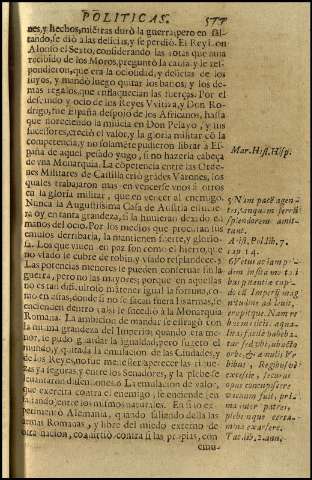 POLITICAS. 577
nes, y hechos, miétras duró la guerra; pero en fal-
tando, se dió a las delicias, y se perdió. El Rey Don
Alonso el Sexto, considerando las rotas que auia
recibido de los Moros, preguntó la causa, y le res-
pondieron, que era la ociosidad, y delicias de los
suyos, y mandó luego quitar los baños, y los de-
mas regalos, que enflaquecian las fuerças. Por el
descuido y ocio de los Reyes Vvitiza, y Don Ro-
drigo, fue España despojo de los Africanos, hasta
que floreciendo la milicia en Don Pelayo, y sus
sucessores, creció el valor, y la gloria militar có la
competencia, y no solaméte pudieron librar a Es-
paña de aquel pesado yugo, si no hazerla cabeça
de vna Monarquia. La cópetencia entre las Orde-
nes Militares de Castilla crió grādes Varones, los
quales trabajaron mas en vencerse vnos à otros
en la gloria militar, que en vencer al enemigo.
Nunca la Augustissima Casa de Austria estuuie-
ra oy en tanta grandeza, si la huuieran dexado en
manos del ocio. Por los medios que procuran sus
emulos derribarla, la mantienen fuerte, y glorio-
sa. Los que viuen en paz son como el hierro, que
no vsado se cubre de robin, y vsado resplandece. 5
Las potencias menores se pueden conseruar sin la
guerra, pero no las mayores; porque en aquellas
no es tan dificultoso mátener igual la fortuna, co-
mo en estas, donde si no se sacan fuera las armas, se
encienden dentro: assi le sucedió a la Monarquia
Romana. La ambicion de mandar se estragó con
la misma grandeza del Imperio; quando era me-
nor, se pudo guardar la igualdad; pero sujeto el
mundo, y quitada la emulacion de las Ciudades, y
de los Reyes, no fue menester apetecer las rique-
zas ya seguras, y entre los Senadores, y la plebe se
leuantaron disensiones. 6 La emulacion de valor,
que exercita contra el enemigo, se enciende en
faltando, entre los mismos naturales. En si lo ex-
perimentó Alemania, quando saliendo della las
armas Romanas, y libre del miedo externo de
otra nacion, conuirtió contra si las propias, con
emu-
Mar. Hist. Hisp.
5 Nam pacē agen-
tes, tanquam ferrū
splendorem amit-
tunt.
Arist. Pol. lib. 7.
cap. 14.
6 Vetus ac iam pri-
dem insita morta-
libus potentiæ cupi-
do cū Imperij mag-
nitudine adoleuit,
erupitque. Nam re-
bus modicis æqua-
litas facile habeba-
tur sed vbi subacto
orbe, & æmulis Vr-
bibus, Regibusvè
excisis, securas
opes concupiscere
vacuum fuit, pri-
ma inter patres,
plebemque certa-
mina exarsere.
Tac. lib. 2. ann.